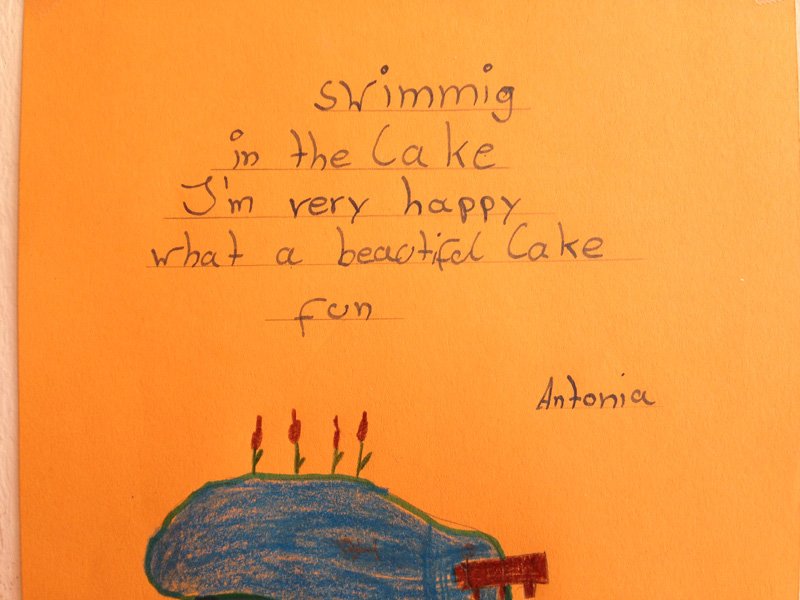 swimmig
in the Lake
I'm very happy
what a beautiful Lake
fun
Antonia